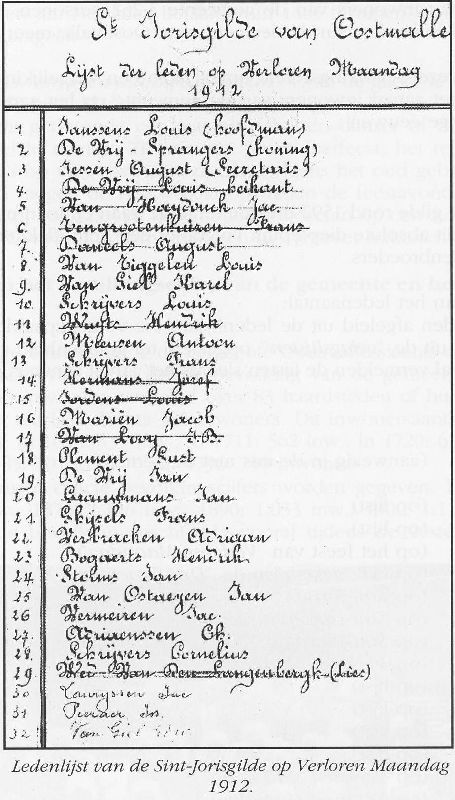 St Jorisgilde van Oostmalle
Lijst der leden op Verloren Maandag
1912
1 Janssens Louis (hoofdman)
2 De Vrij - Sprangers (koning)
3 Jessen August (Secretaris)
4. De Vrij Louis Heikant
5 Van Hoeydonck Jac
6. Frans
7. Daneels August
8. Van Tiggelen Louis
9. Van Giel Karel
10. Schrijvers Louis
11 Wuyts Hendrik
12 Meeusen Antoon
13 Schrijvers Frans
14. Hermans Josef
15 Jordens Louis
16 Mariën Jacob
17 Van Looy J.B.
18. Plement Gust
19. De Vrij Jan
20 Jan
21. Frans
22. Verbraeken Adriaan
23 Bogaerts Hendrik
24 Jan
25 Van Ostaeyen Jan
26 Vermeiren Jac.
27. Adriaenssen Ch.
28. Schrijvers Cornelius
29 Wed Van Den Langenbergh (Lies)
30 Lauryssen Jac
31
32 Van Giel
Ledenlijst van de Sint-Jorisgilde op Verloren Maandag
1912.